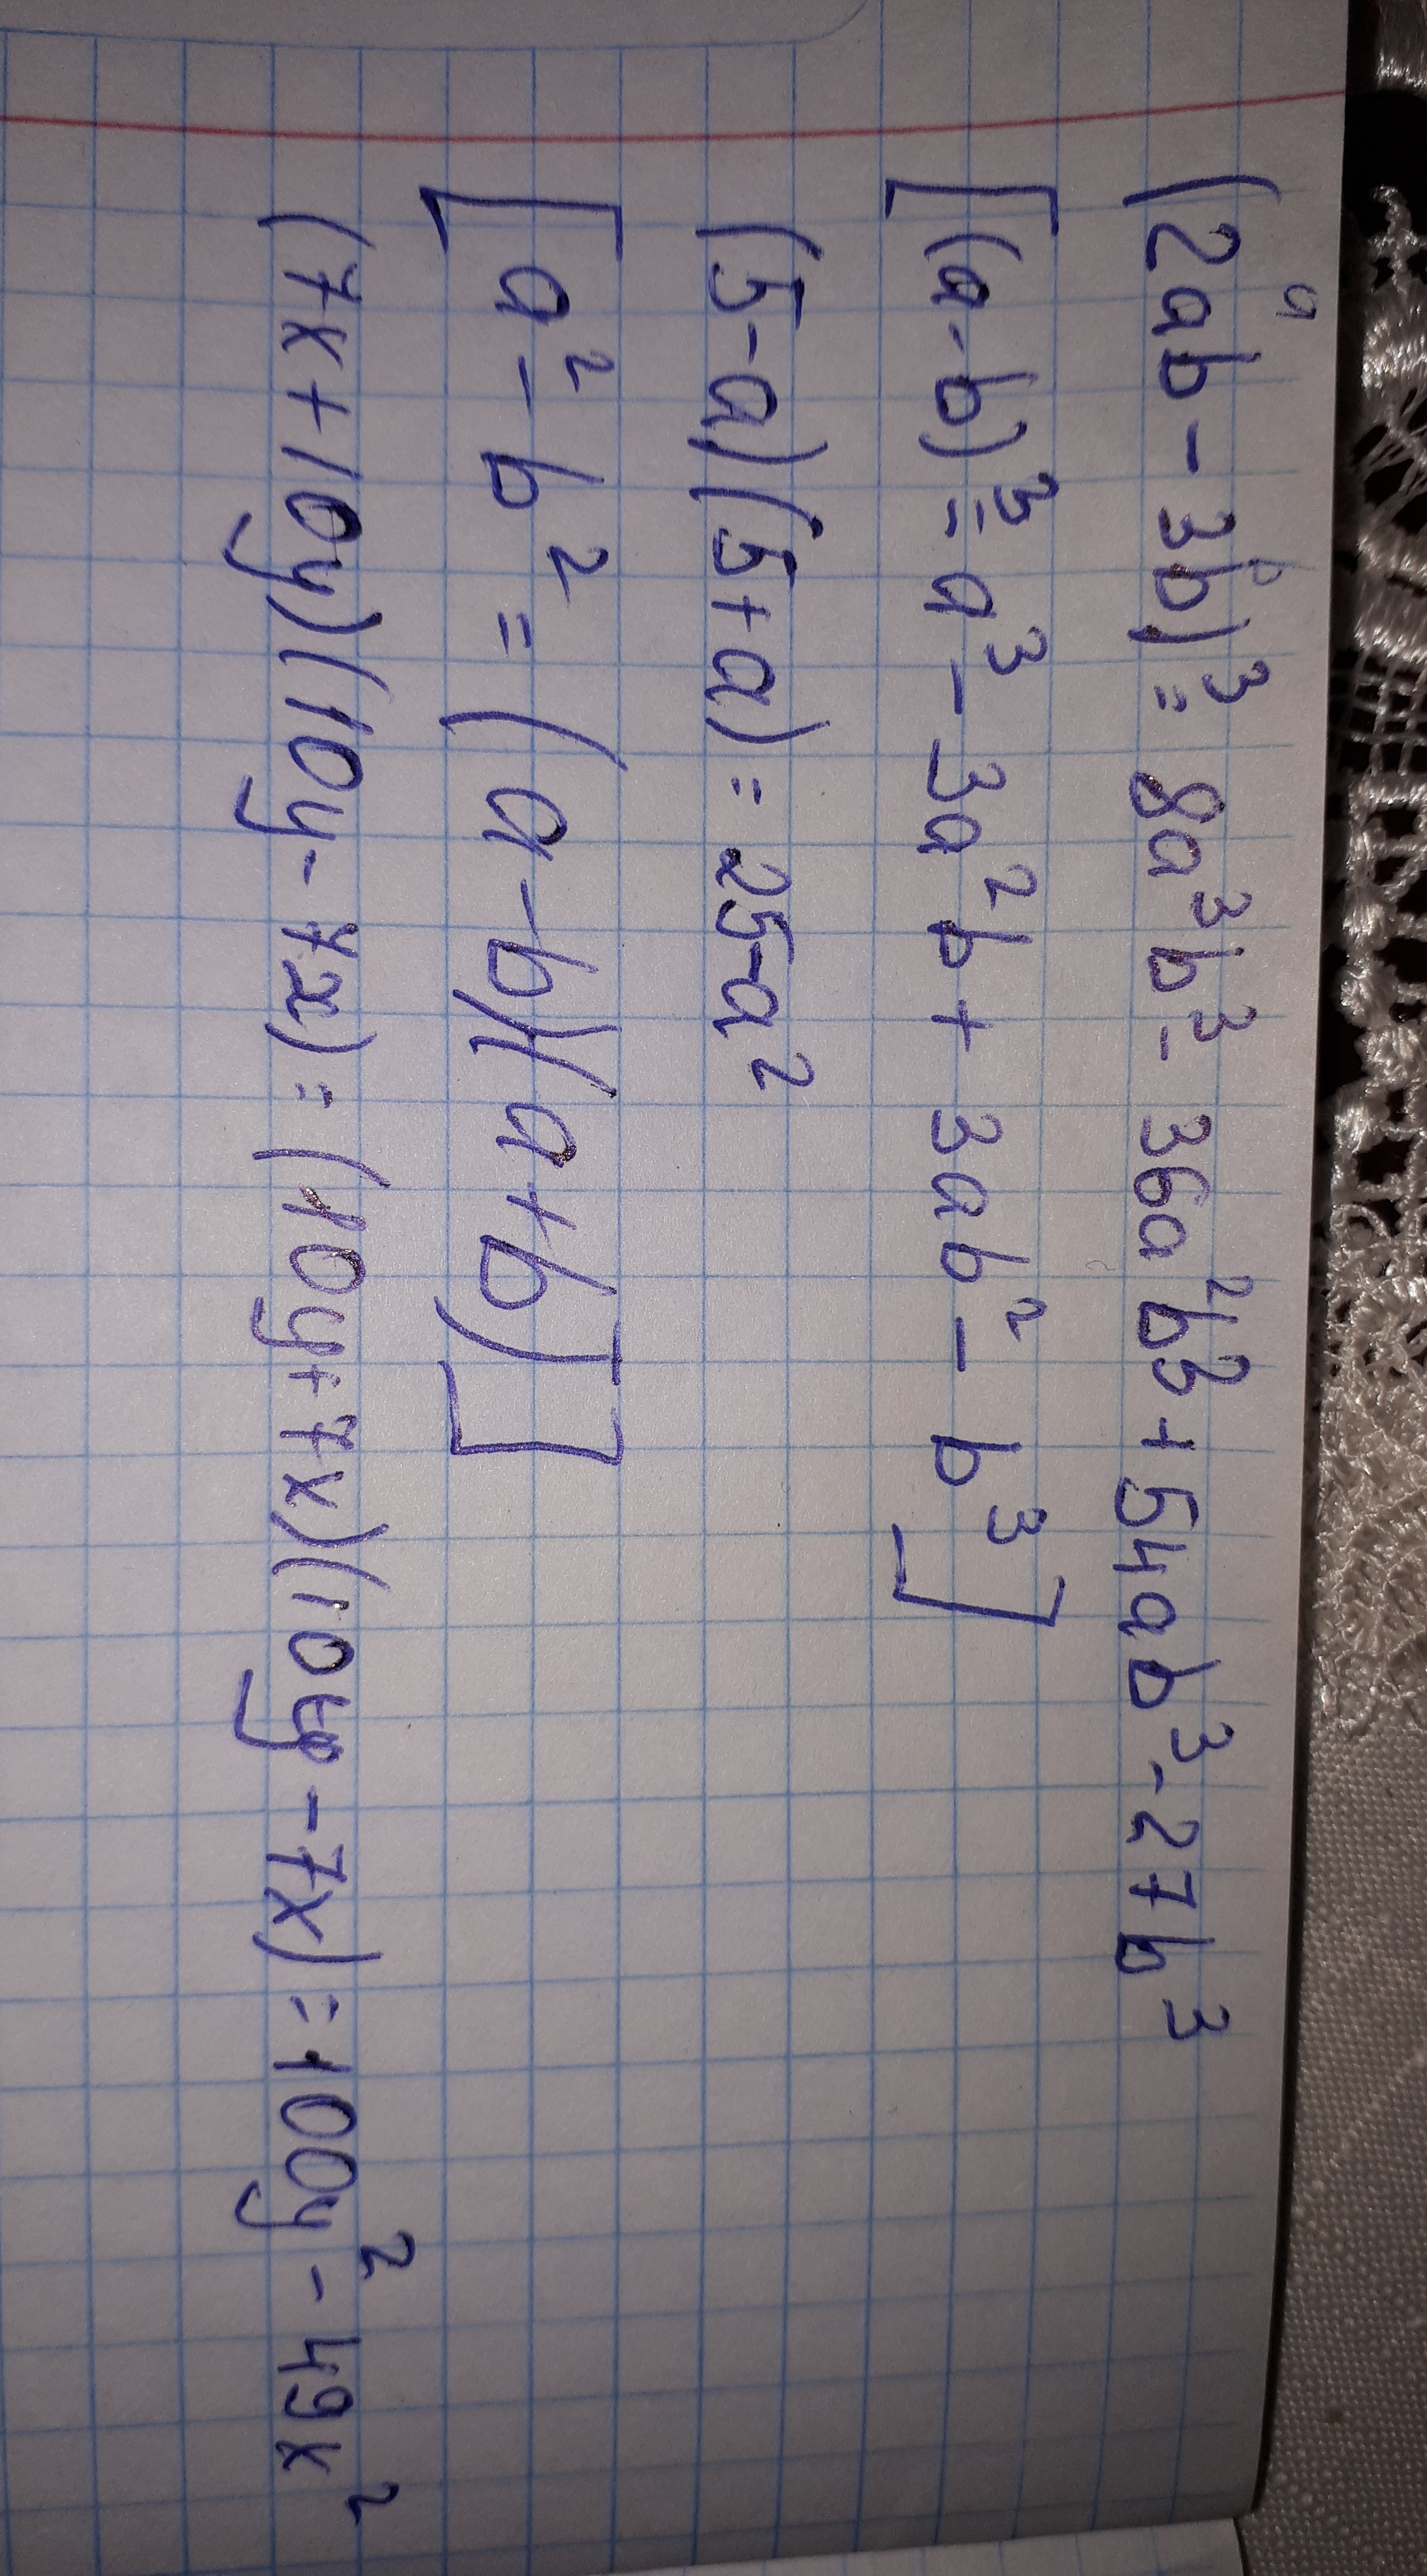 a b
(2ab - 3b)³ = 8a³b³ - 36a²b³ + 54ab³ - 27b³
[(a-b)³ = a³ - 3a²b + 3ab² - b³]
(5-a)(5+a) = 25-a²
[a² - b² = (a-b)(a+b)]
(7x+10y)(10y-7x) = (10y+7x)(10y-7x) = 100y² - 49x²